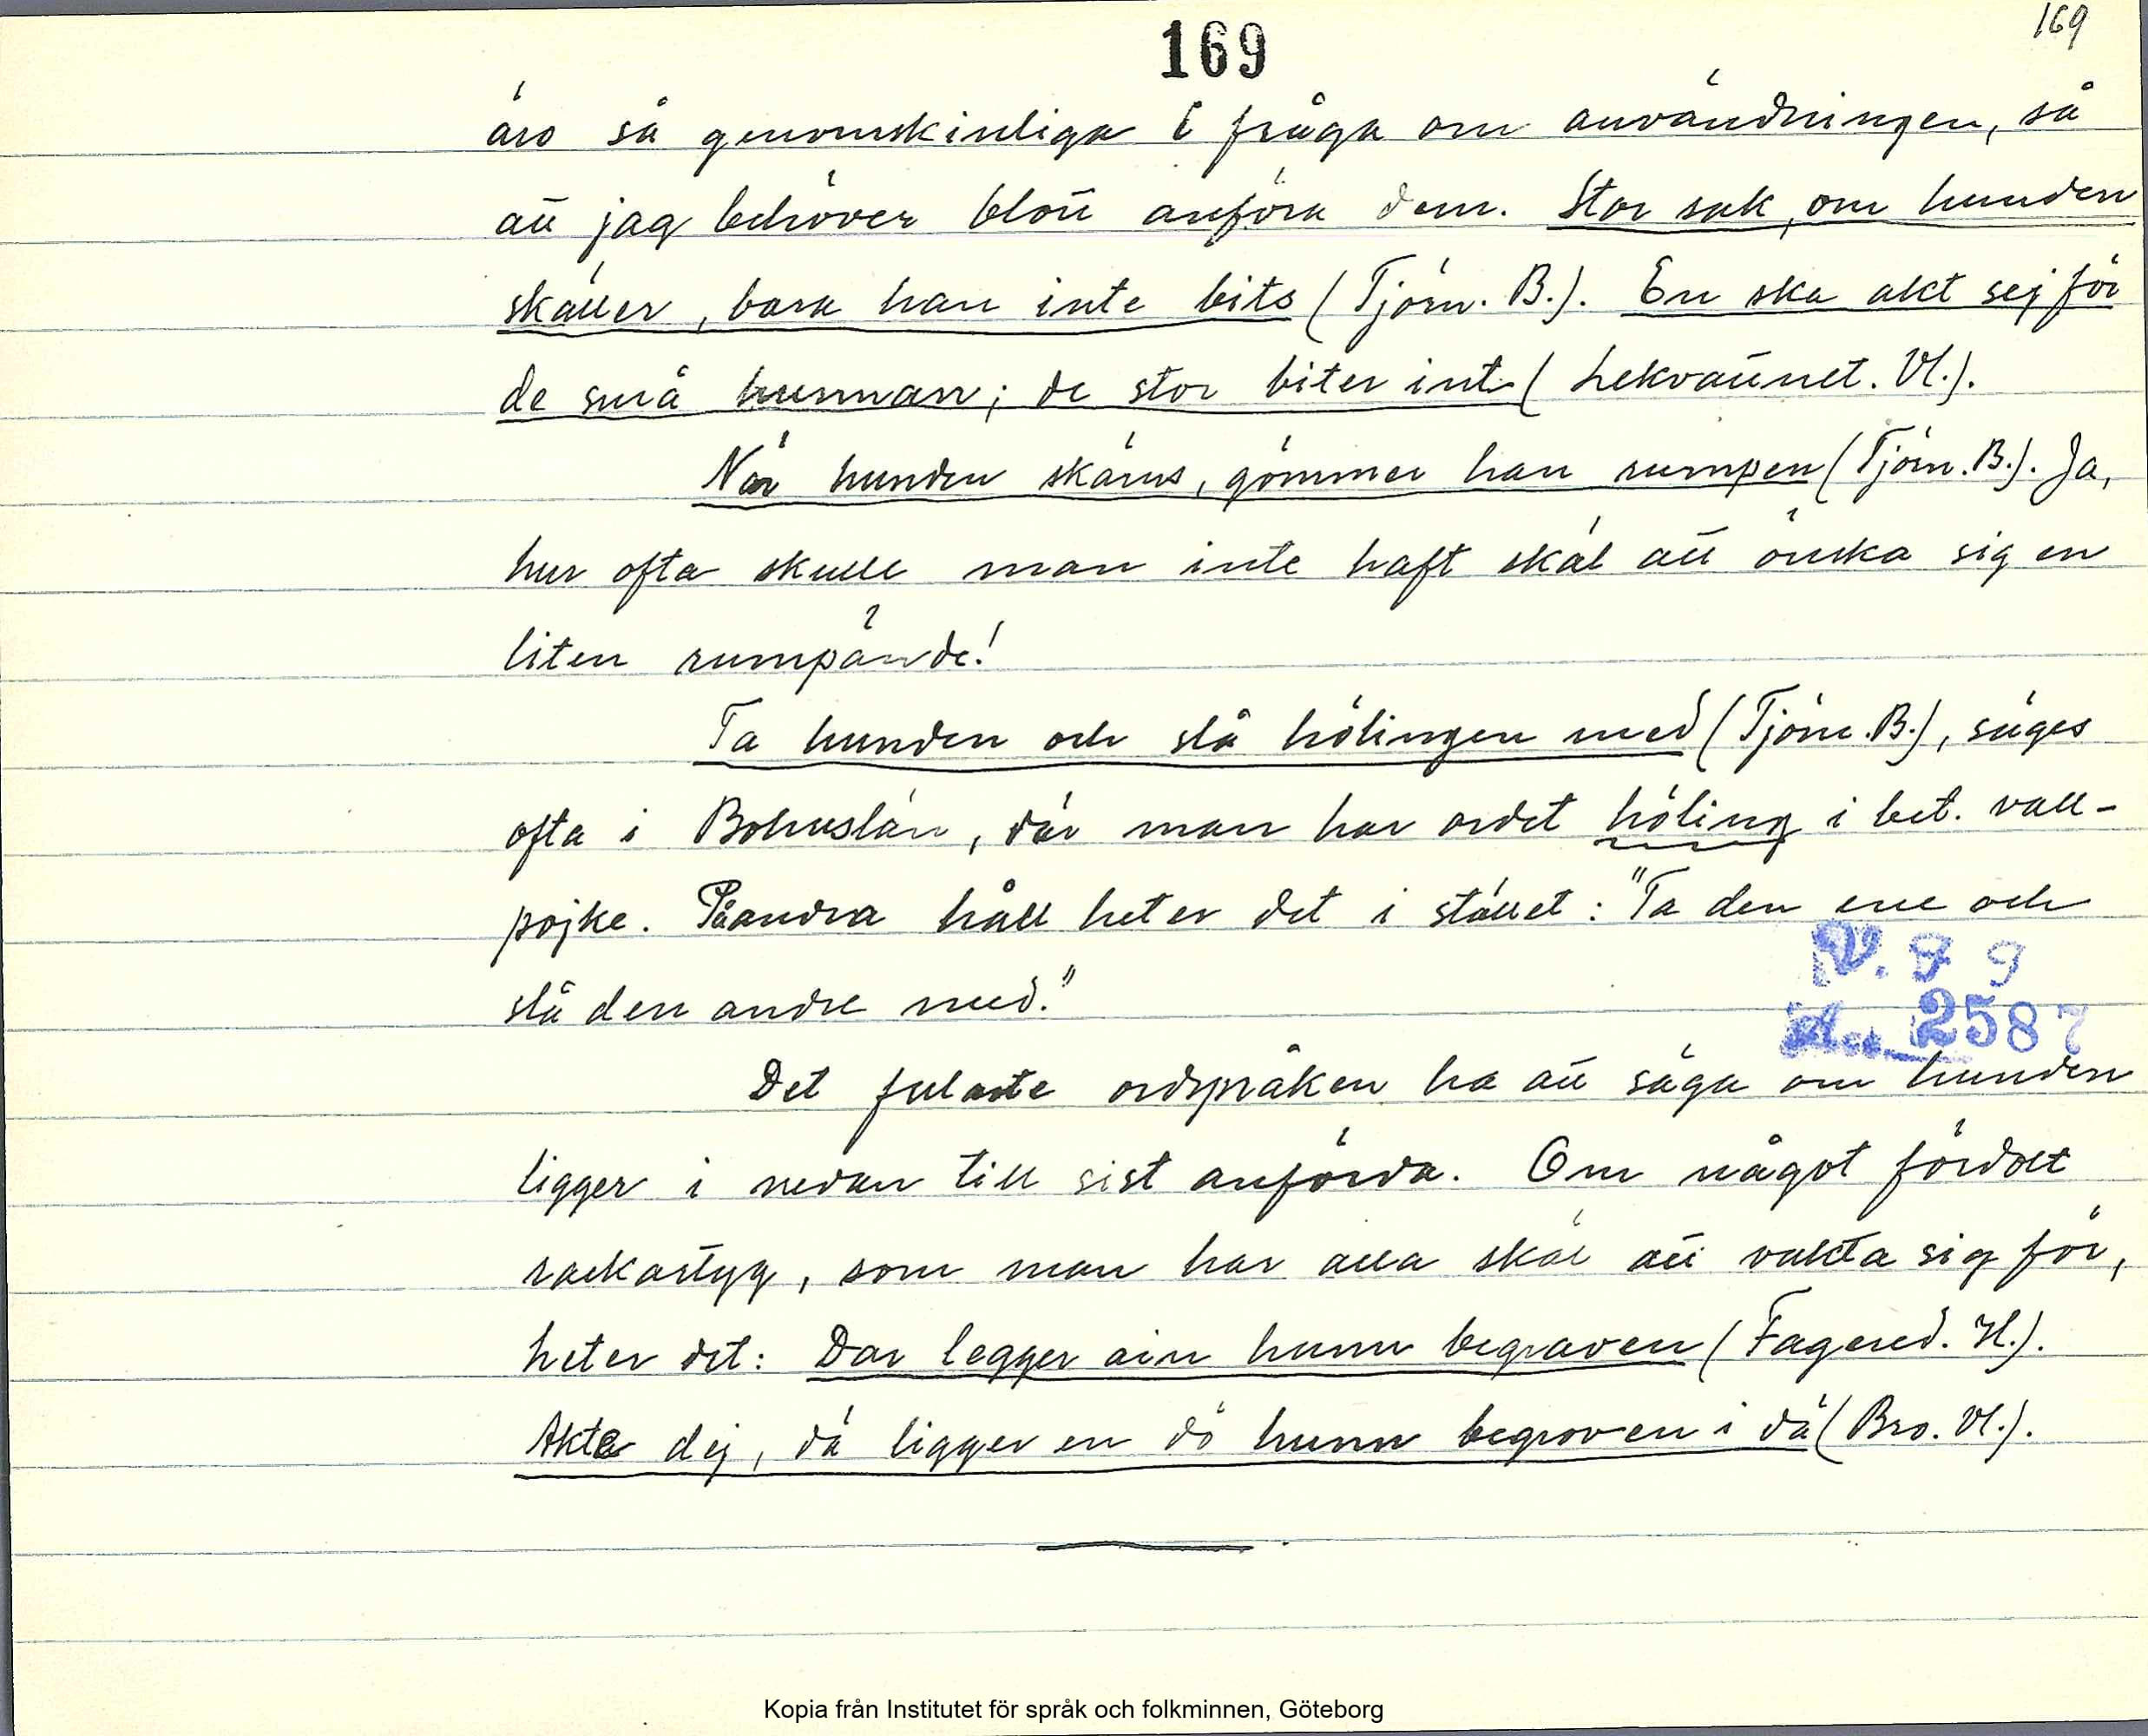 169
169
äro så genomskinliga i fråga om användningen, så
att jag behöver blott anföra dem. Stor sak, om hunden
skäller, bara han inte bits (Tjörn. B.). En ska akt sej för
de små hunnan; de stor biter int (Lekvattnet. Vl.).
När hunden skäms, gömmer han rumpen (Tjörn. B.). Ja,
hur ofta skulle man inte haft skäl att önska sig en
liten rumpände!
Ta hunden och slå hölingen med (Tjörn. B.), säges
ofta i Bohuslän, där man har ordet höling i bet. vall-
pojke. På andra håll heter det i stället: "Ta den ene och
slå den andre med."
V. F 9
Acc. 2587
Det fulaste ordspråken ha att säga om hunden
ligger i nedan till sist anförda. Om något fördolt
rackartyg, som man har alla skäl att vakta sig för,
heter det: Dar legger ain hunn begraven (Fagered. H.).
Akta dej, dä ligger en dö hunn begroven i dä (Bro. Vl.).
Kopia från Institutet för språk och folkminnen, Göteborg